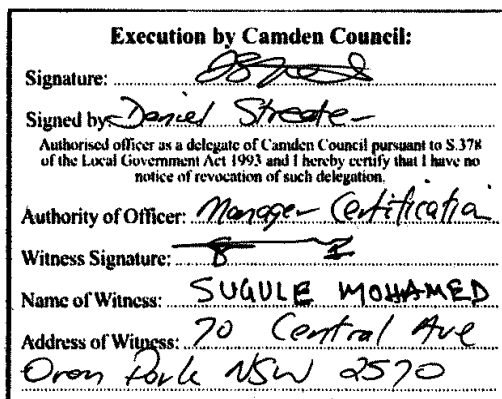 Execution by Camden Council:
Signature:
Signed by Daniel Streater
Authorised officer as a delegate of Camden Council pursuant to S.378
of the Local Government Act 1993 and I hereby certify that I have no
notice of revocation of such delegation.
Authority of Officer: Manager Certification
Witness Signature:
Name of Witness: SUGULE MOHAMED
Address of Witness: 70 Central Ave
Oran Park NSW 2570